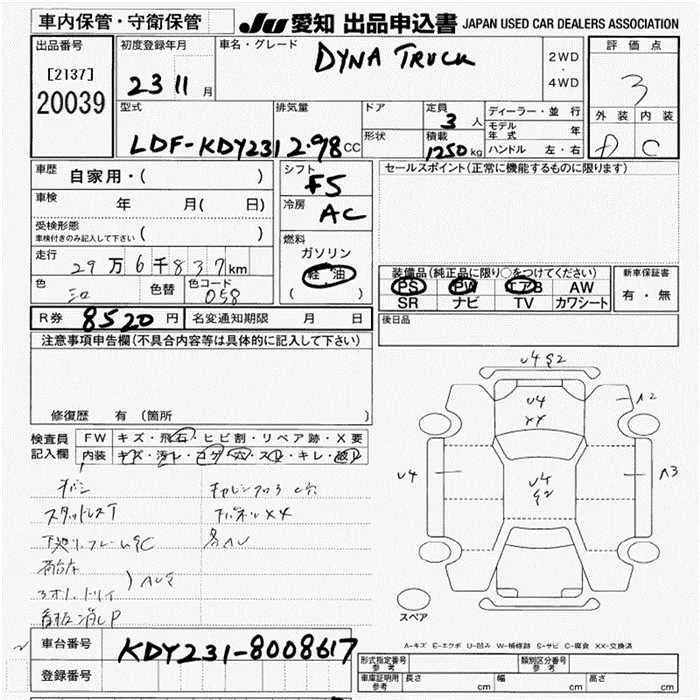 車内保管・守衛保管 JU 愛知 出品申込書 JAPAN USED CAR DEALERS ASSOCIATION
出品番号 [2137] 20039
初度登録年月 23 11 月
車名・グレード DYNA TRUCK
2WD・4WD
評価点 3
外装 内装 C
型式 LDF-KDY231
排気量 2.98 CC
ドア 形状
定員 3 人
積載 1250 kg
ディーラー・並行
モデル年式 年
ハンドル 左・右
車歴 自家用・( )
車検 年 月( 日)
受検形態
車検付きのみ記入して下さい ( )
走行 29万6千837km
色 シロ 色替 色コード 058
シフト F5
冷房 AC
燃料 ガソリン 軽油 ( )
セールスポイント(正常に機能するものに限ります)
装備品(純正品に限り○をつけてください)
PS PW エアB AW
SR ナビ TV カワシート
新車保証書 有・無
R券 8520円 名変通知期限 月 日
後日品
注意事項申告欄(不具合内容等は具体的に記入して下さい)
修復歴 有(箇所 )
検査員記入欄 FW キズ・飛石・ヒビ割・リペア跡・X要
内装 キズ・汚レ・コゲ・穴・スレ・キレ・破レ
スタッドレスT
U4 S2
U4
XX
A2
U4
U4
S2
A3
スペア
A-キズ E-エクボ U-凹み W-補修跡 S-サビ C-腐食 XX-交換済
車台番号 KDY231-8008617
登録番号
形式指定番号 参考 類別区分番号 参考
車庫証明用 参考 長さ cm 幅 cm 高さ cm